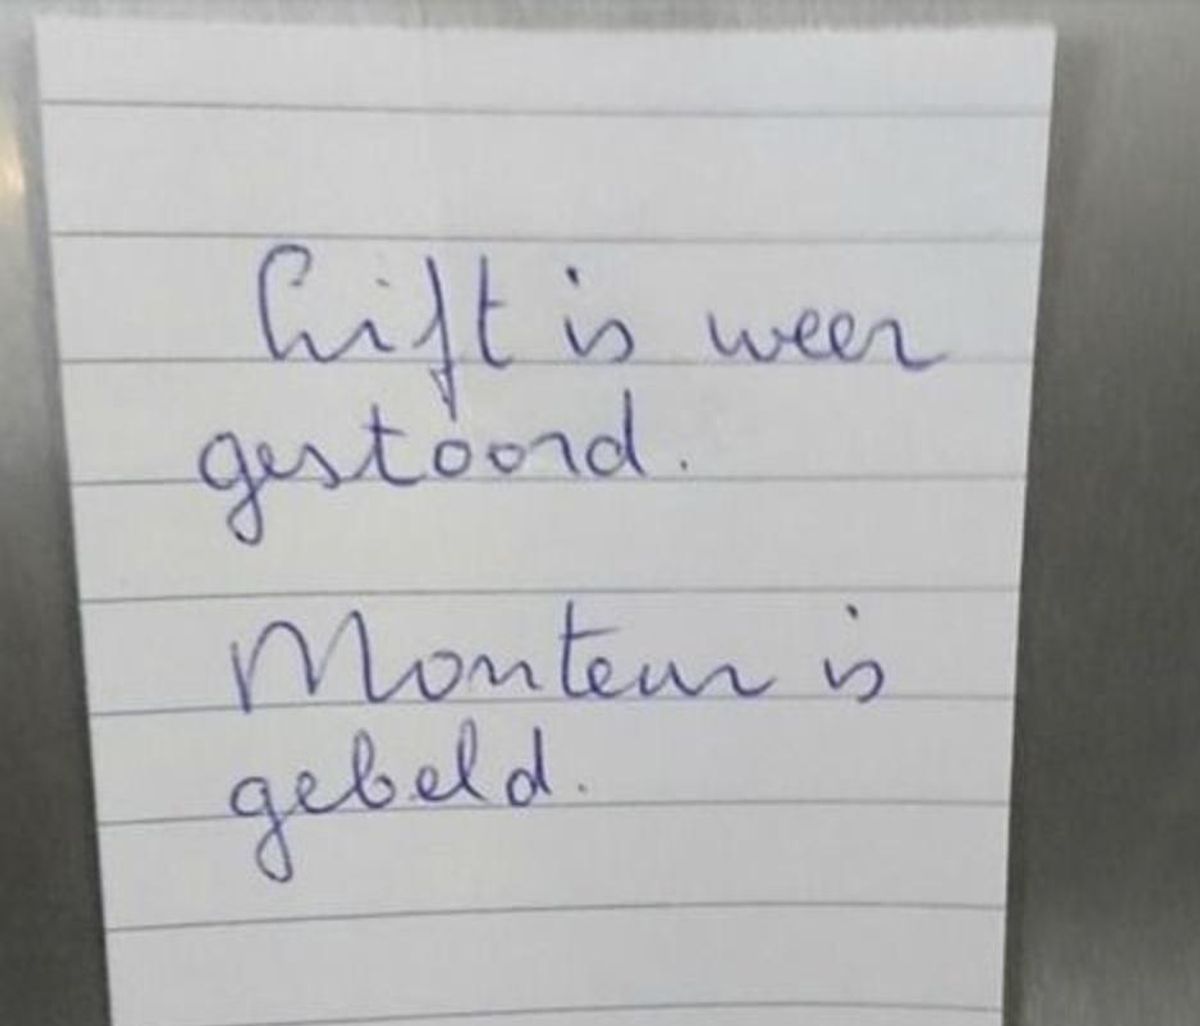 Lift is weer
gestoord.
Monteur is
gebeld.